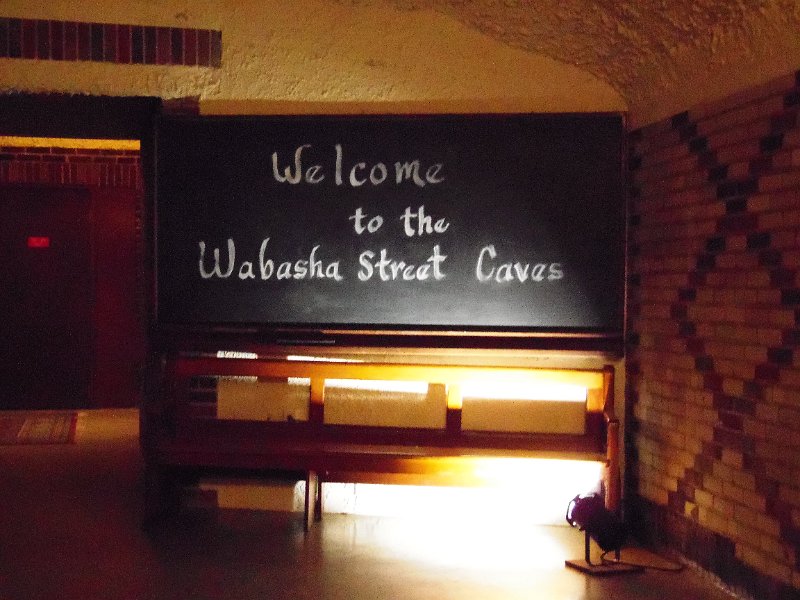 Welcome
to the
Wabasha Street Caves